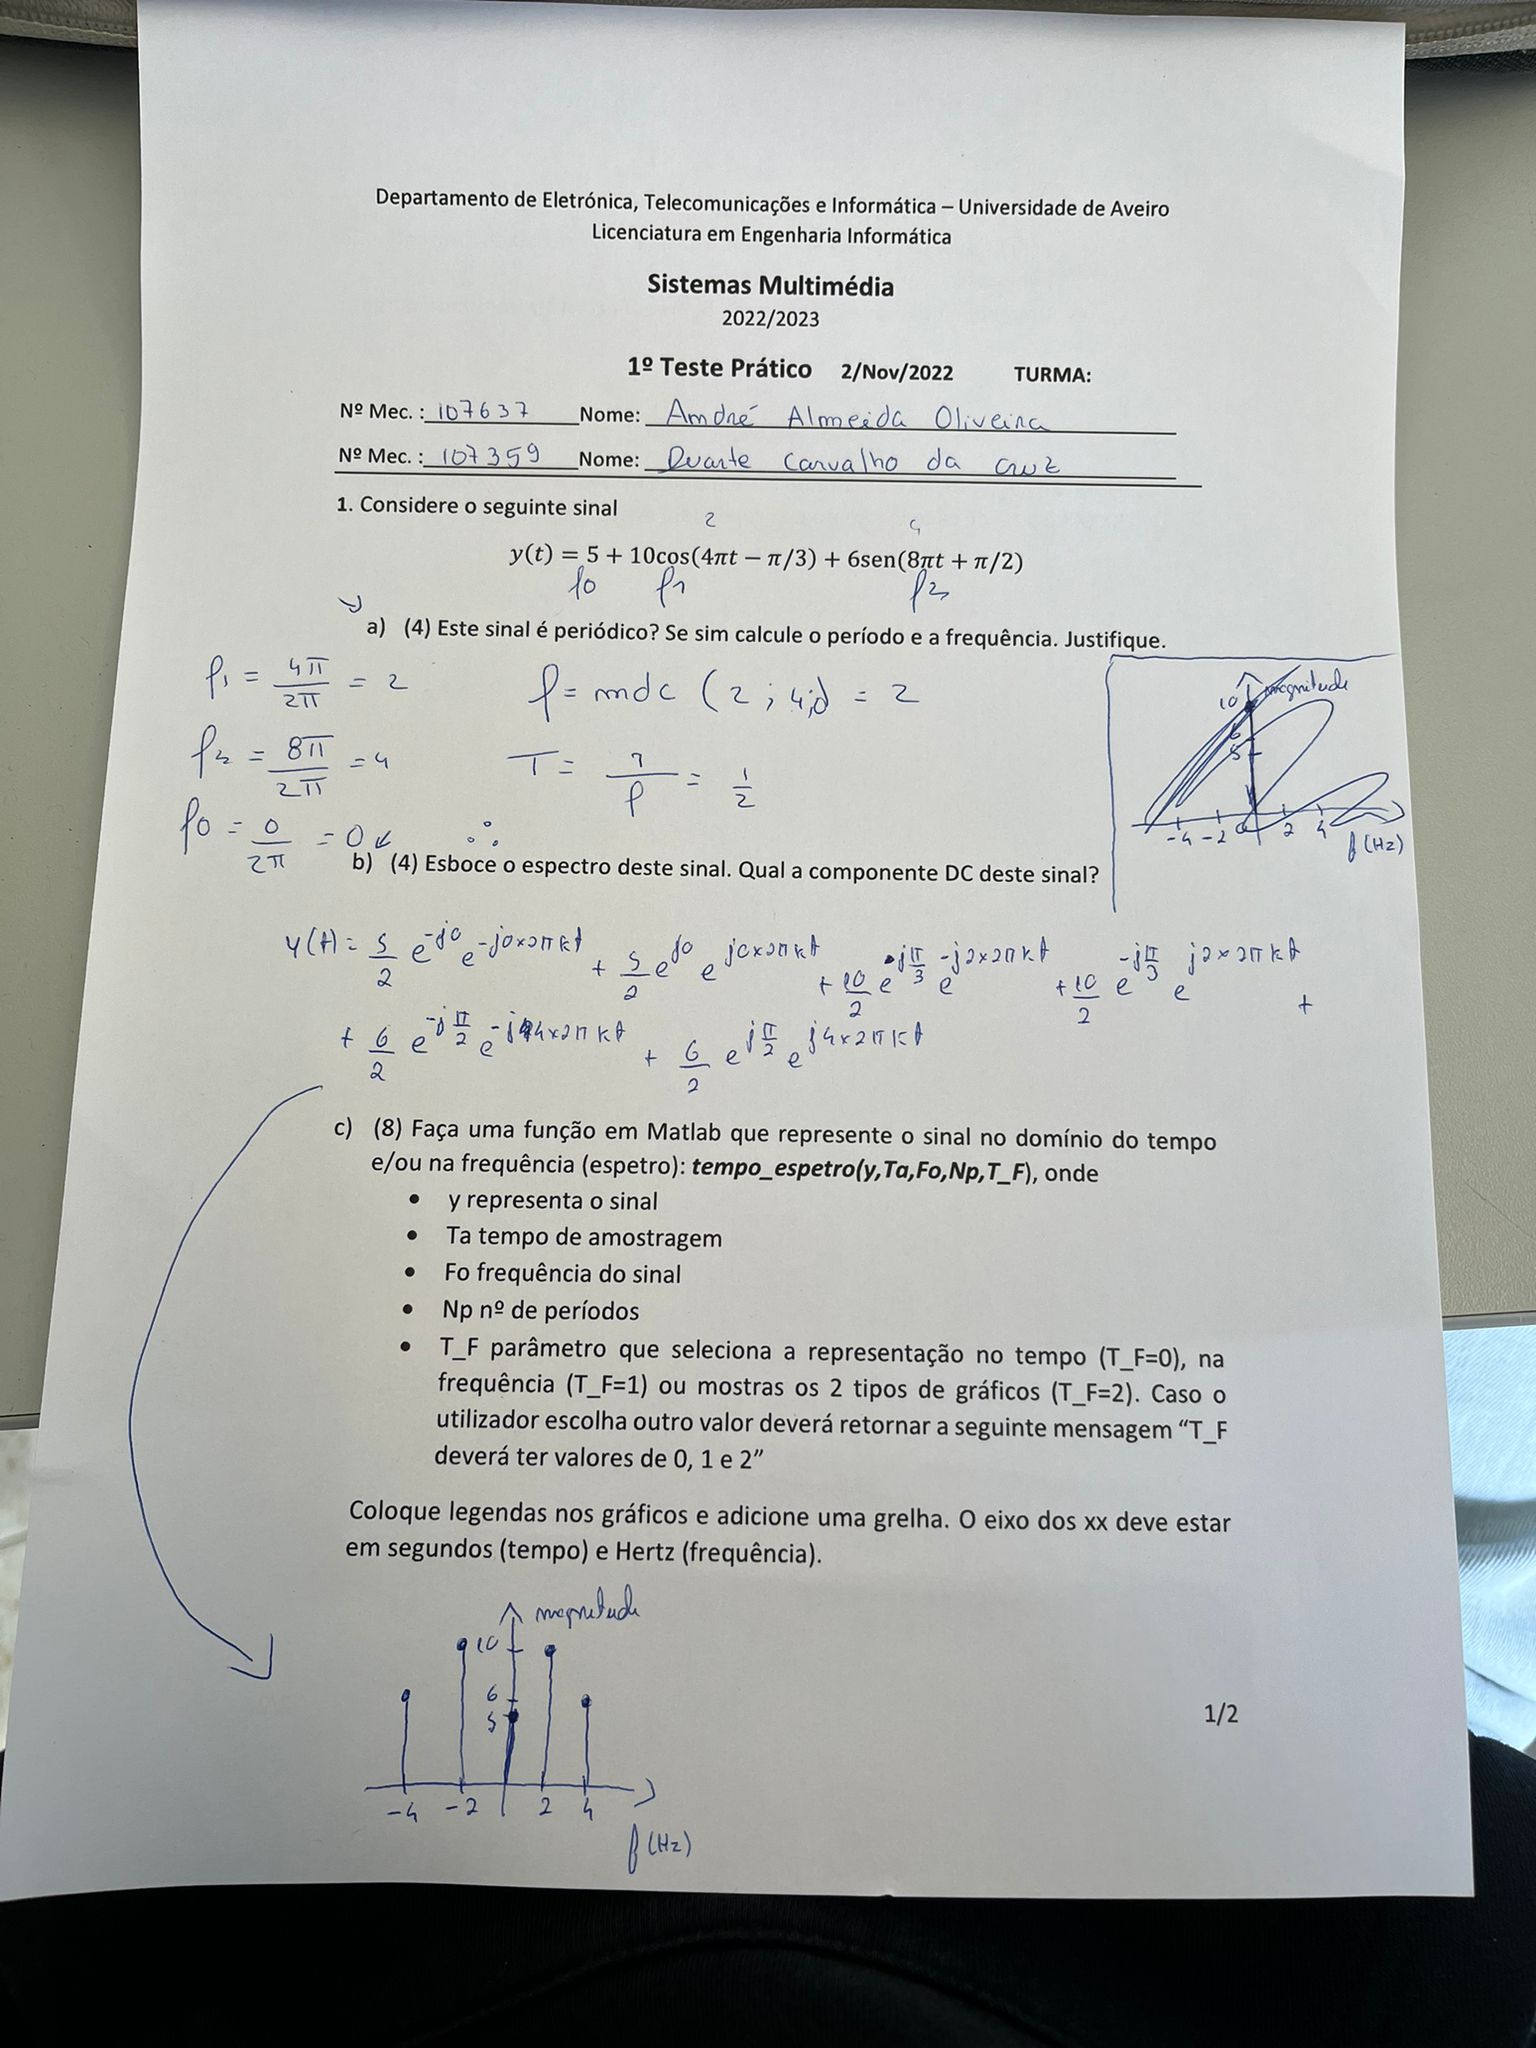 Departamento de Eletrónica, Telecomunicações e Informática – Universidade de Aveiro
Licenciatura em Engenharia Informática
Sistemas Multimédia
2022/2023
1º Teste Prático 2/Nov/2022 TURMA:
Nº Mec. : 107637 Nome: André Almeida Oliveira
Nº Mec. : 107359 Nome: Duarte Carvalho da Cruz
1. Considere o seguinte sinal
2 4
y(t) = 5 + 10cos(4πt − π/3) + 6sen(8πt + π/2)
f0 f1 f2
a) (4) Este sinal é periódico? Se sim calcule o período e a frequência. Justifique.
f1 = 4π/2π = 2 f = mdc (2; 4) = 2
f2 = 8π/2π = 4 T = 1/f = 1/2
f0 = 0/2π = 0 ∴
magnitude
10
6
5
-4 -2 0 2 4
f (Hz)
b) (4) Esboce o espectro deste sinal. Qual a componente DC deste sinal?
y(t) = 5/2 e^-j0 e^-j0×2πkt + 5/2 e^j0 e^j0×2πkt + 10/2 e^jπ/3 e^-j2×2πkt + 10/2 e^-jπ/3 e^j2×2πkt +
+ 6/2 e^-jπ/2 e^-j4×2πkt + 6/2 e^jπ/2 e^j4×2πkt
c) (8) Faça uma função em Matlab que represente o sinal no domínio do tempo
e/ou na frequência (espetro): tempo_espetro(y,Ta,Fo,Np,T_F), onde
• y representa o sinal
• Ta tempo de amostragem
• Fo frequência do sinal
• Np nº de períodos
• T_F parâmetro que seleciona a representação no tempo (T_F=0), na
frequência (T_F=1) ou mostras os 2 tipos de gráficos (T_F=2). Caso o
utilizador escolha outro valor deverá retornar a seguinte mensagem “T_F
deverá ter valores de 0, 1 e 2”
Coloque legendas nos gráficos e adicione uma grelha. O eixo dos xx deve estar
em segundos (tempo) e Hertz (frequência).
magnitude
10
6
5
-4 -2 2 4
f (Hz)
1/2